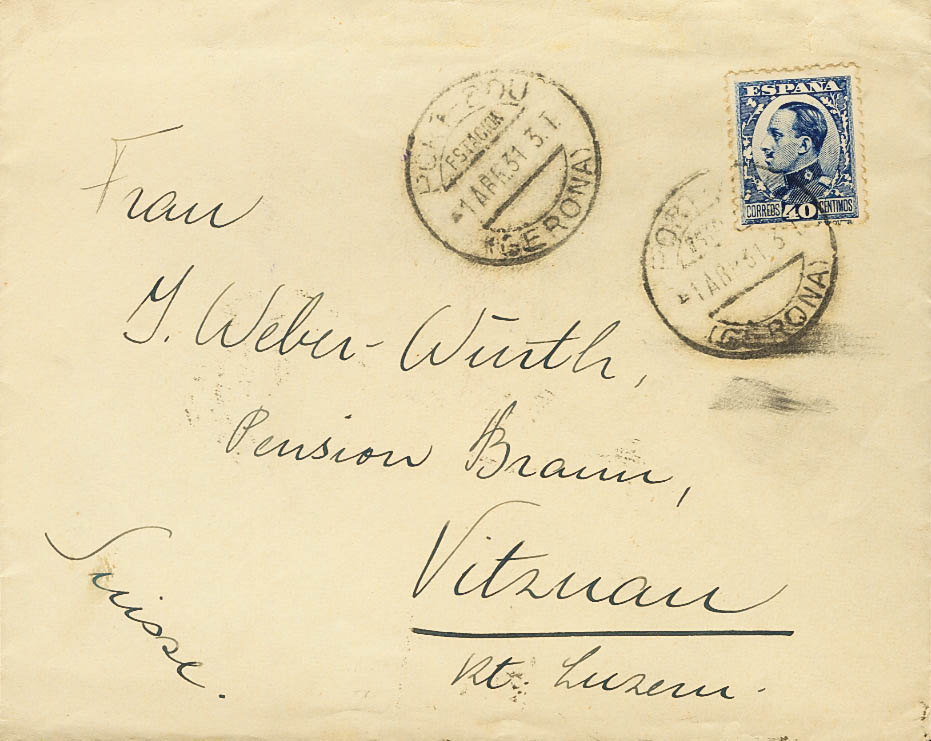 PORT-BOU
ESTACION
*1 ABR.31 3.T.
(GERONA)
ESPAÑA
CORREOS 40 CENTIMOS
PORT
*1 ABR 31 3
(GERONA)
Frau
J. Weber-Würth,
Pension Braun,
Vitznau
Kt. Luzern.
Suisse.